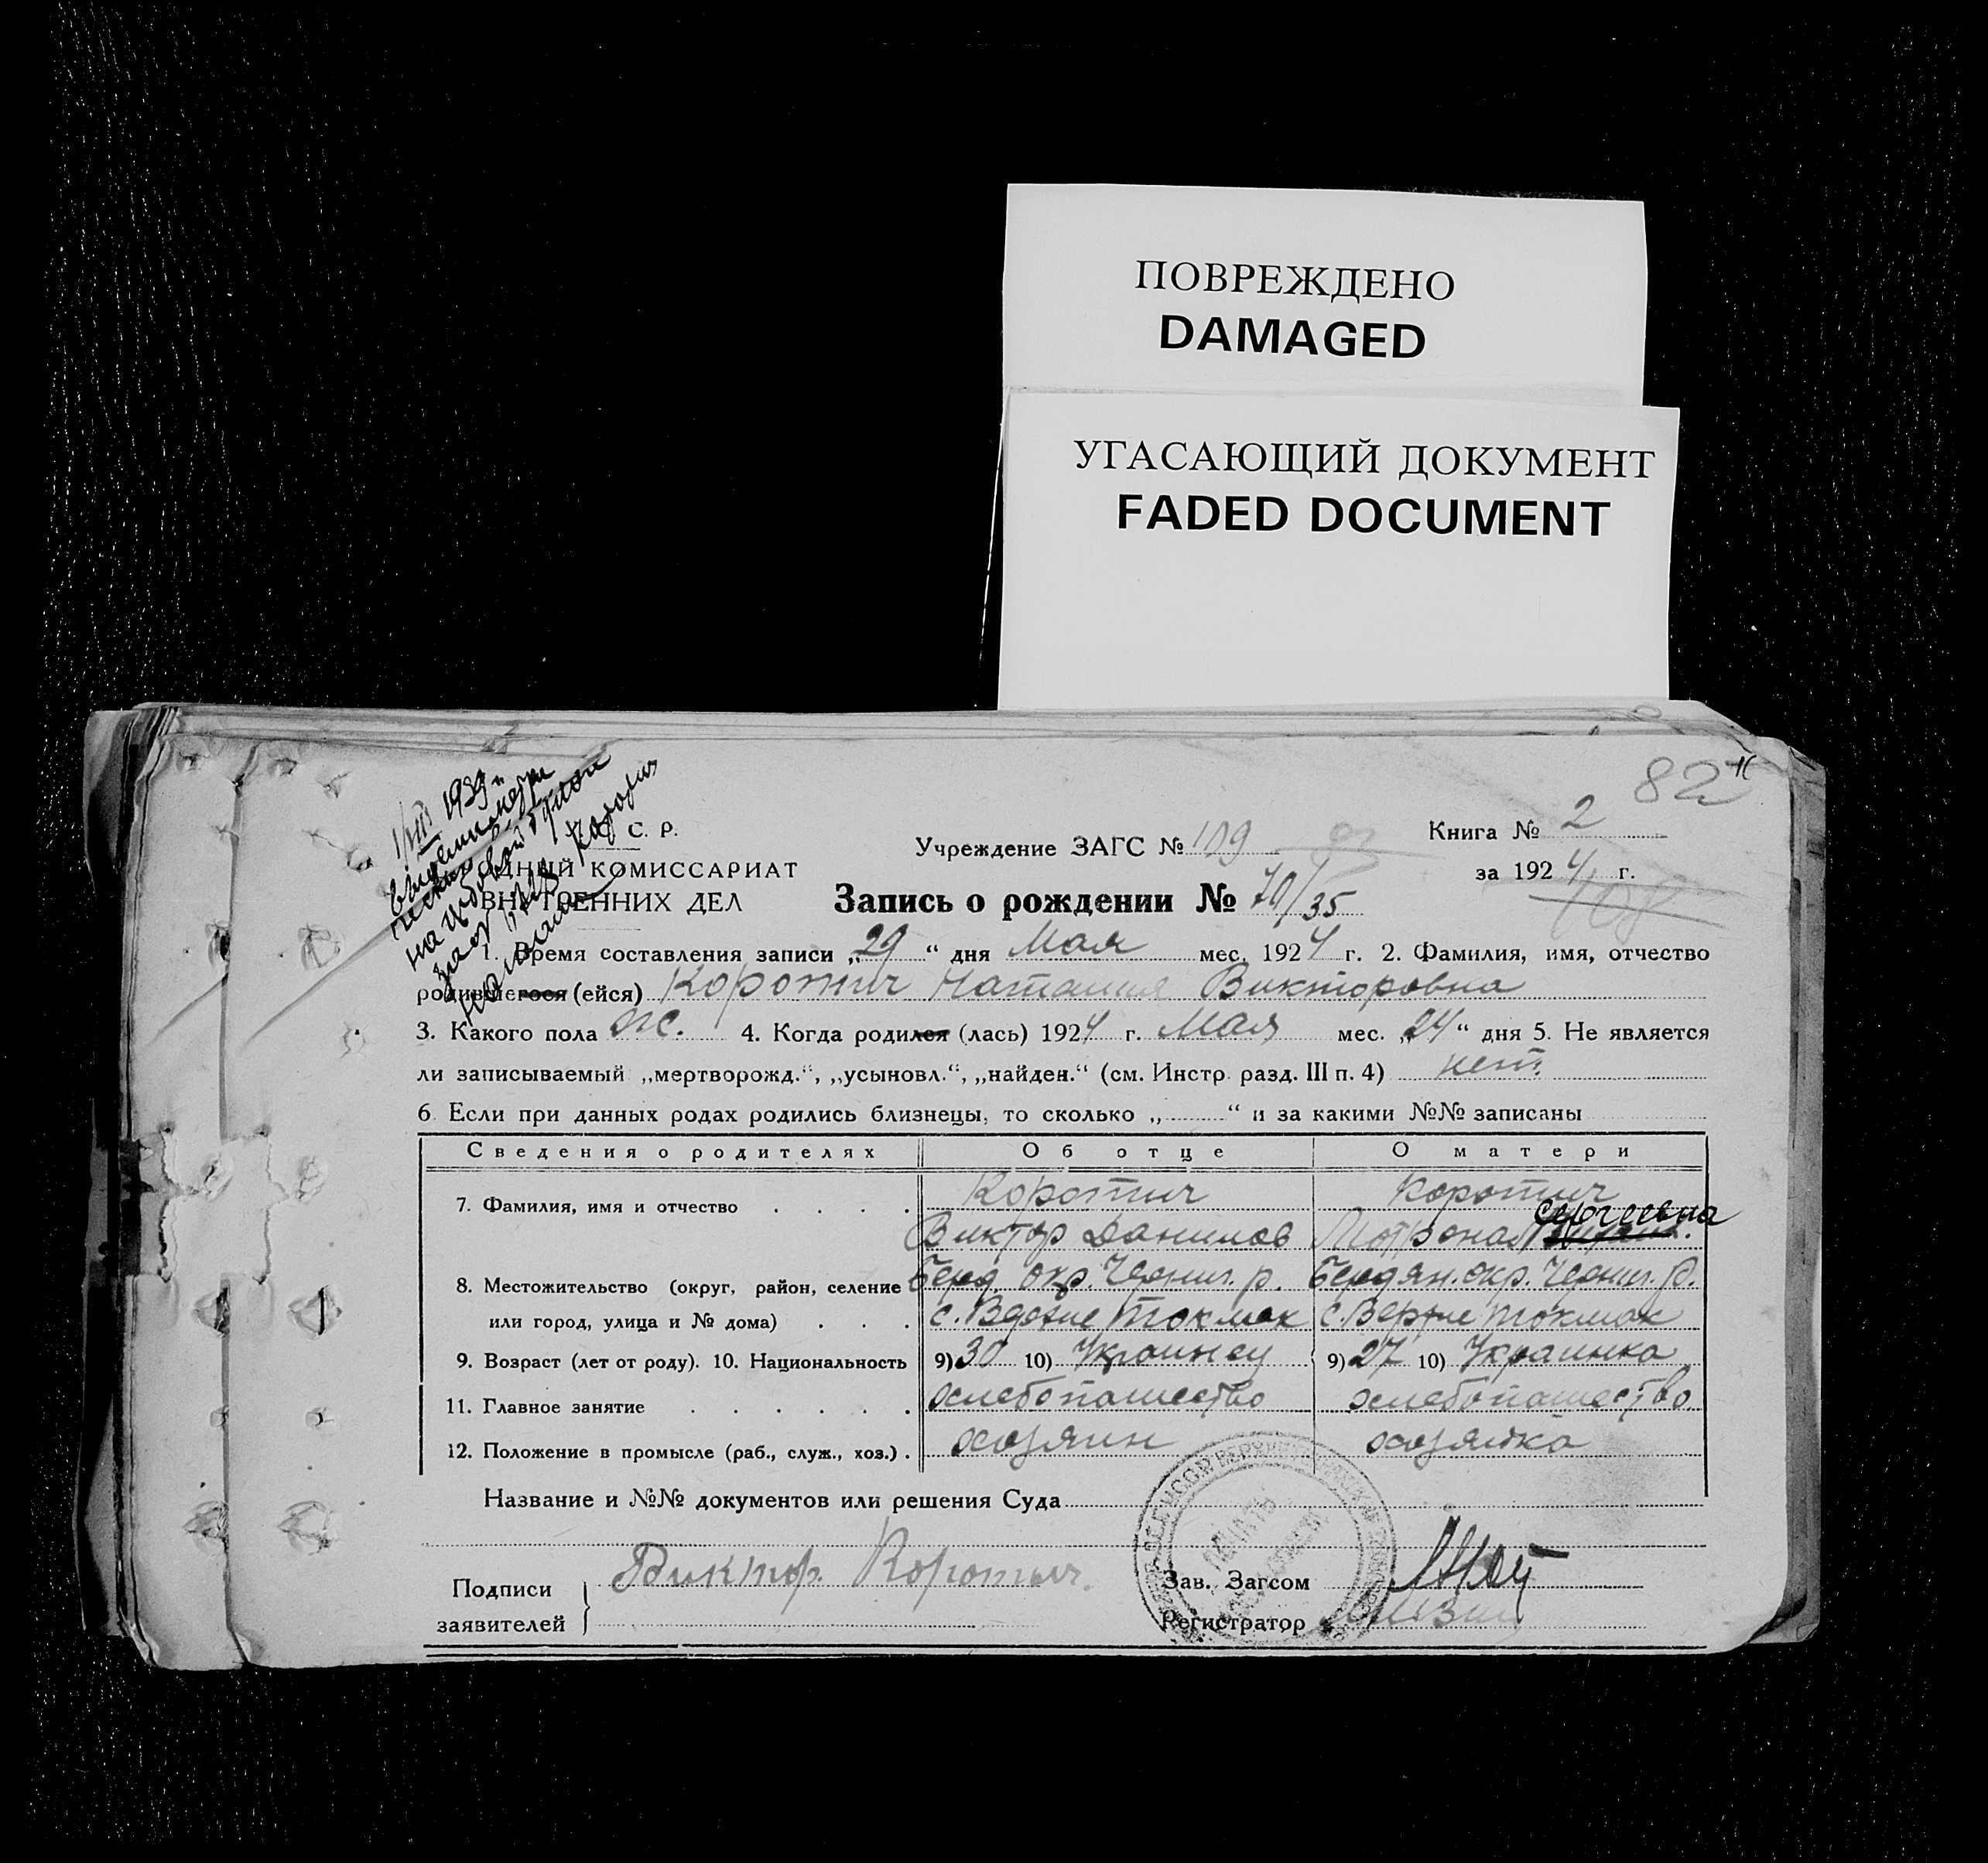 ПОВРЕЖДЕНО
DAMAGED
УГАСАЮЩИЙ ДОКУМЕНТ
FADED DOCUMENT
82
1939
С. Р.
ОДНЫЙ КОМИССАРИАТ
ВНУТРЕННИХ ДЕЛ
Учреждение ЗАГС № 109
Книга № 2
за 1924 г.
Запись о рождении № 70/35
1. Время составления записи „29“ дня Мая мес. 1924 г. 2. Фамилия, имя, отчество
родившегося (ейся) Коротич Наталия Викторовна
3. Какого пола ж. 4. Когда родился (лась) 1924 г. Мая мес. „24“ дня 5. Не является
ли записываемый „мертворожд.“, „усыновл.“, „найден.“ (см. Инстр. разд. III п. 4) нет.
6. Если при данных родах родились близнецы, то сколько „ “ и за какими №№ записаны
Сведения о родителях Об отце О матери
7. Фамилия, имя и отчество Коротич Коротич
Сергеевна
Виктор Данилов Мотрона
8. Местожительство (округ, район, селение Берд. окр. Черниг. р. Бердян. окр. Черниг. р.
или город, улица и № дома) с. Верхне Токмак с. Верхне Токмак
9. Возраст (лет от роду). 10. Национальность 9) 30 10) Украинец 9) 27 10) Украинка
11. Главное занятие хлебопашество хлебопашество
12. Положение в промысле (раб., служ., хоз.) хозяин хозяйка
Название и №№ документов или решения Суда
Подписи Виктор Коротич. Зав. Загсом
заявителей Регистратор